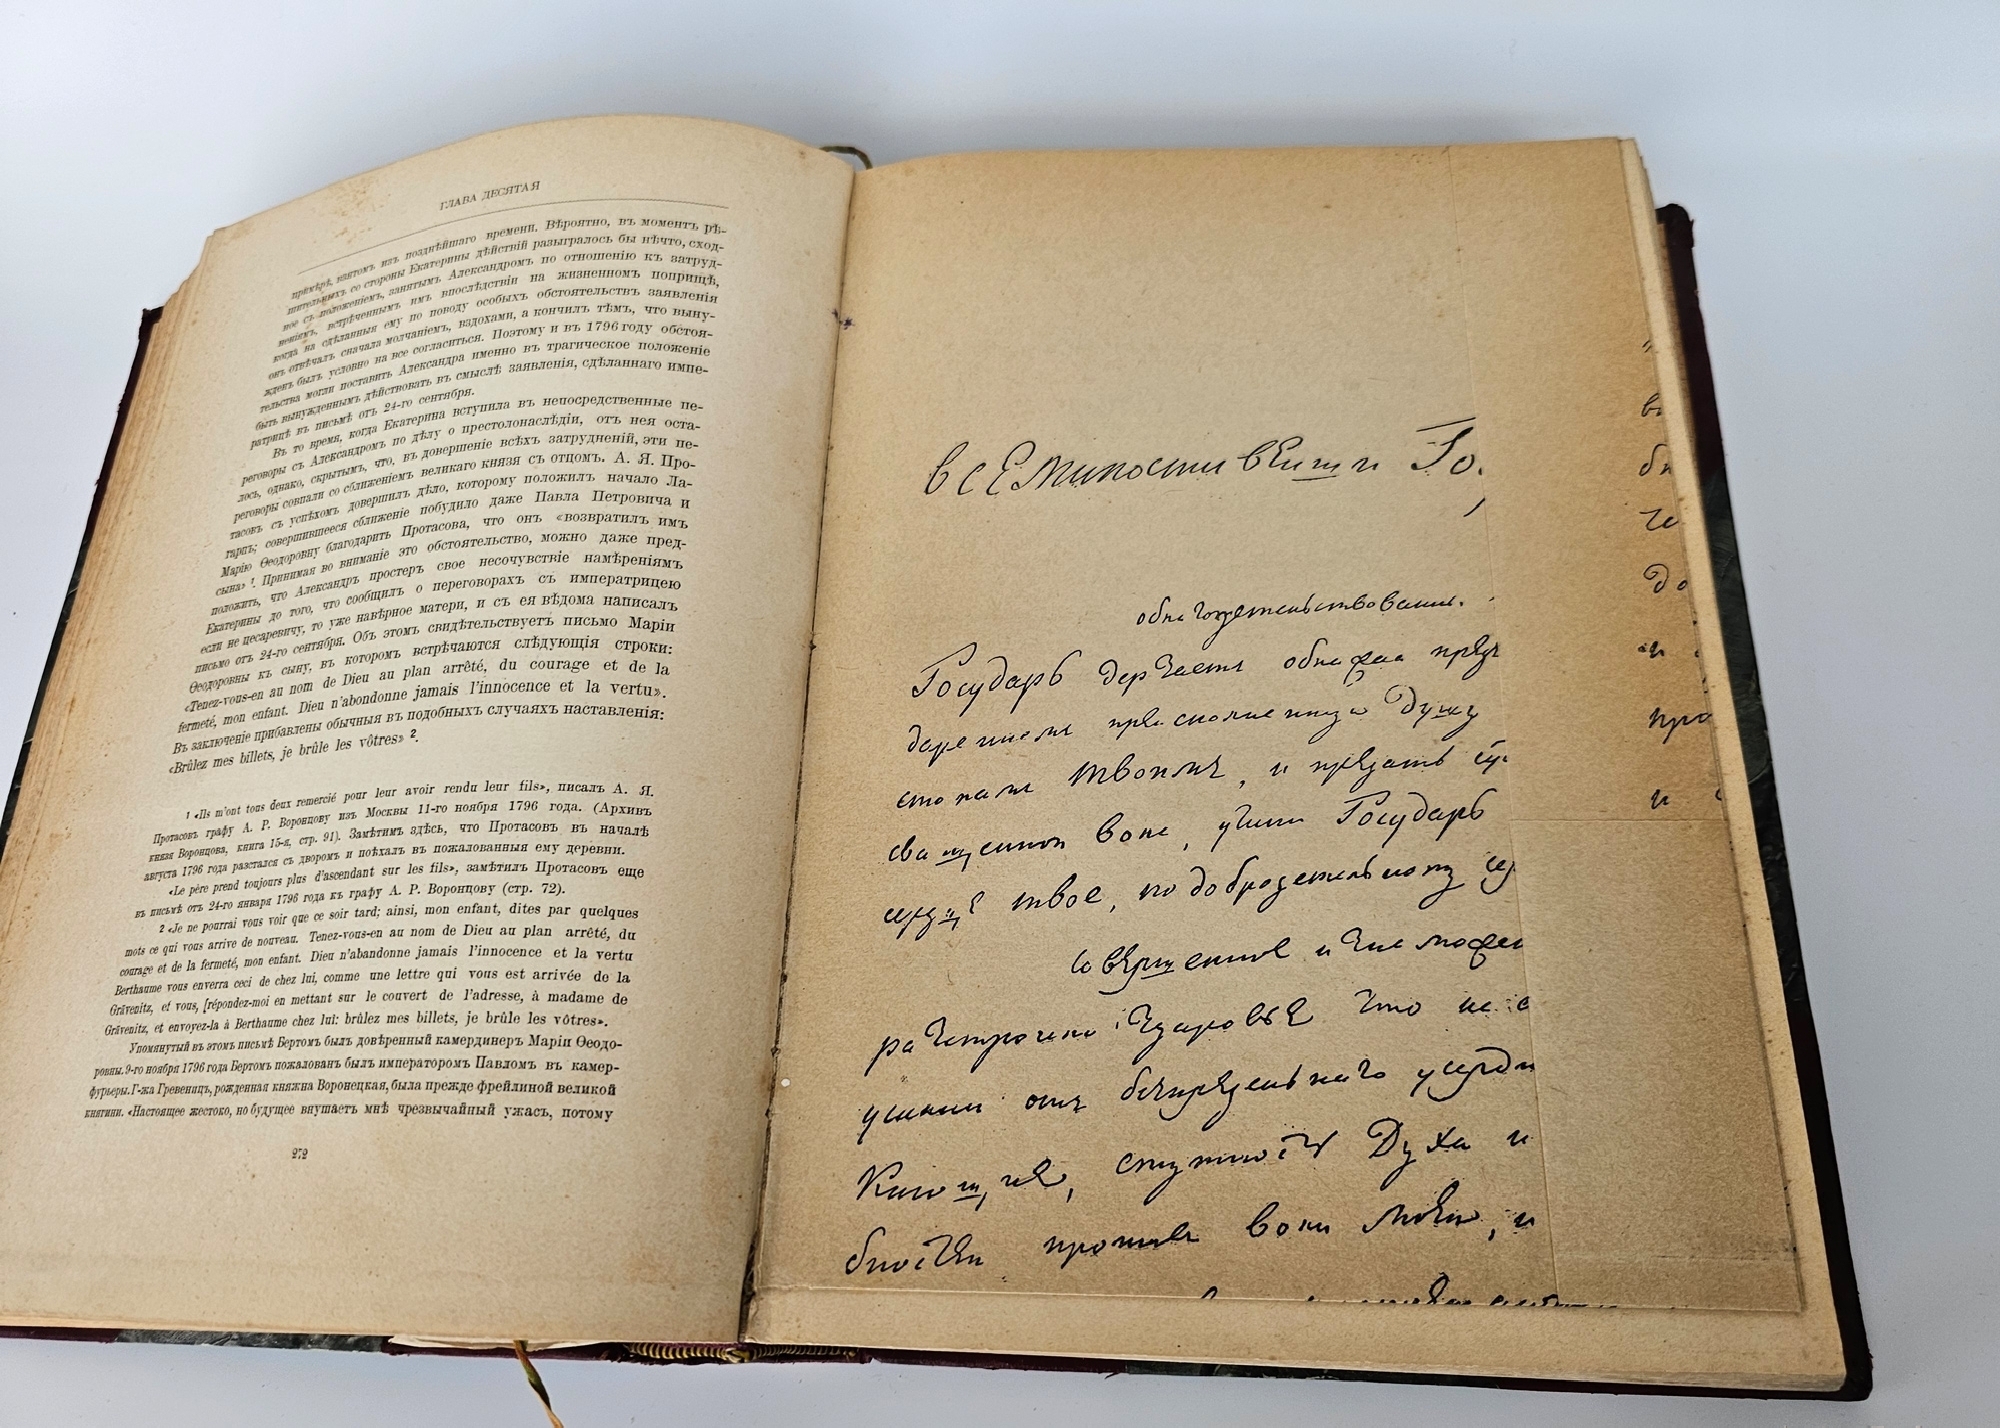 ГЛАВА ДЕСЯТАЯ
примѣрѣ, взятомъ изъ позднѣйшаго времени. Вѣроятно, въ моментъ рѣ-
шительныхъ со стороны Екатерины дѣйствій разыгралось бы нѣчто, сход-
ное съ положеніемъ, занятымъ Александромъ по отношенію къ затруд-
неніямъ, встрѣченнымъ имъ впослѣдствіи на жизненномъ поприщѣ,
когда на сдѣланныя ему по поводу особыхъ обстоятельствъ заявленія
онъ отвѣчалъ сначала молчаніемъ, вздохами, а кончилъ тѣмъ, что выну-
жденъ былъ условно на все согласиться. Поэтому и въ 1796 году обстоя-
тельства могли поставить Александра именно въ трагическое положеніе
быть вынужденнымъ дѣйствовать въ смыслѣ заявленія, сдѣланнаго импе-
ратрицѣ въ письмѣ отъ 24-го сентября.
Въ то время, когда Екатерина вступила въ непосредственные пе-
реговоры съ Александромъ по дѣлу о престолонаслѣдіи, отъ нея оста-
лось, однако, скрытымъ, что, въ довершеніе всѣхъ затрудненій, эти пе-
реговоры совпали со сближеніемъ великаго князя съ отцомъ. А. Я. Про-
тасовъ съ успѣхомъ довершилъ дѣло, которому положилъ начало Ла-
гарпъ; совершившееся сближеніе побудило даже Павла Петровича и
Марію Ѳеодоровну благодарить Протасова, что онъ «возвратилъ имъ
сына» ¹. Принимая во вниманіе это обстоятельство, можно даже пред-
положить, что Александръ простеръ свое несочувствіе намѣреніямъ
Екатерины до того, что сообщилъ о переговорахъ съ императрицею
если не цесаревичу, то уже навѣрное матери, и съ ея вѣдома написалъ
письмо отъ 24-го сентября. Объ этомъ свидѣтельствуетъ письмо Маріи
Ѳеодоровны къ сыну, въ которомъ встрѣчаются слѣдующія строки:
«Tenez-vous-en au nom de Dieu au plan arrêté, du courage et de la
fermeté, mon enfant. Dieu n'abandonne jamais l'innocence et la vertu».
Въ заключеніе прибавлены обычныя въ подобныхъ случаяхъ наставленія:
«Brûlez mes billets, je brûle les vôtres» ².
¹ «Ils m'ont tous deux remercié pour leur avoir rendu leur fils», писалъ А. Я.
Протасовъ графу А. Р. Воронцову изъ Москвы 11-го ноября 1796 года. (Архивъ
князя Воронцова, книга 15-я, стр. 91). Замѣтимъ здѣсь, что Протасовъ въ началѣ
августа 1796 года разстался съ дворомъ и поѣхалъ въ пожалованныя ему деревни.
«Le père prend toujours plus d'ascendant sur les fils», замѣтилъ Протасовъ еще
въ письмѣ отъ 24-го января 1796 года къ графу А. Р. Воронцову (стр. 72).
² «Je ne pourrai vous voir que ce soir tard; ainsi, mon enfant, dites par quelques
mots ce qui vous arrive de nouveau. Tenez-vous-en au nom de Dieu au plan arrêté, du
courage et de la fermeté, mon enfant. Dieu n'abandonne jamais l'innocence et la vertu
Berthaume vous enverra ceci de chez lui, comme une lettre qui vous est arrivée de la
Grävenitz, et vous, [répondez-moi en mettant sur le couvert de l'adresse, à madame de
Grävenitz, et envoyez-la à Berthaume chez lui: brûlez mes billets, je brûle les vôtres».
Упомянутый въ этомъ письмѣ Бертомъ былъ довѣренный камердинеръ Маріи Ѳеодо-
ровны. 9-го ноября 1796 года Бертомъ пожалованъ былъ императоромъ Павломъ въ камер-
фурьеры. Г-жа Гревеницъ, рожденная княжна Воронецкая, была прежде фрейлиной великой
княгини. «Настоящее жестоко, но будущее внушаетъ мнѣ чрезвычайный ужасъ, потому
272
всЕмилостивЕиши Го
Государь дерЧаетъ
душу
стопамъ твоимъ, и
воле, Государь
твое, по добродетельному
что не
усилии отъ
Духа и
противъ воли моЕи, и